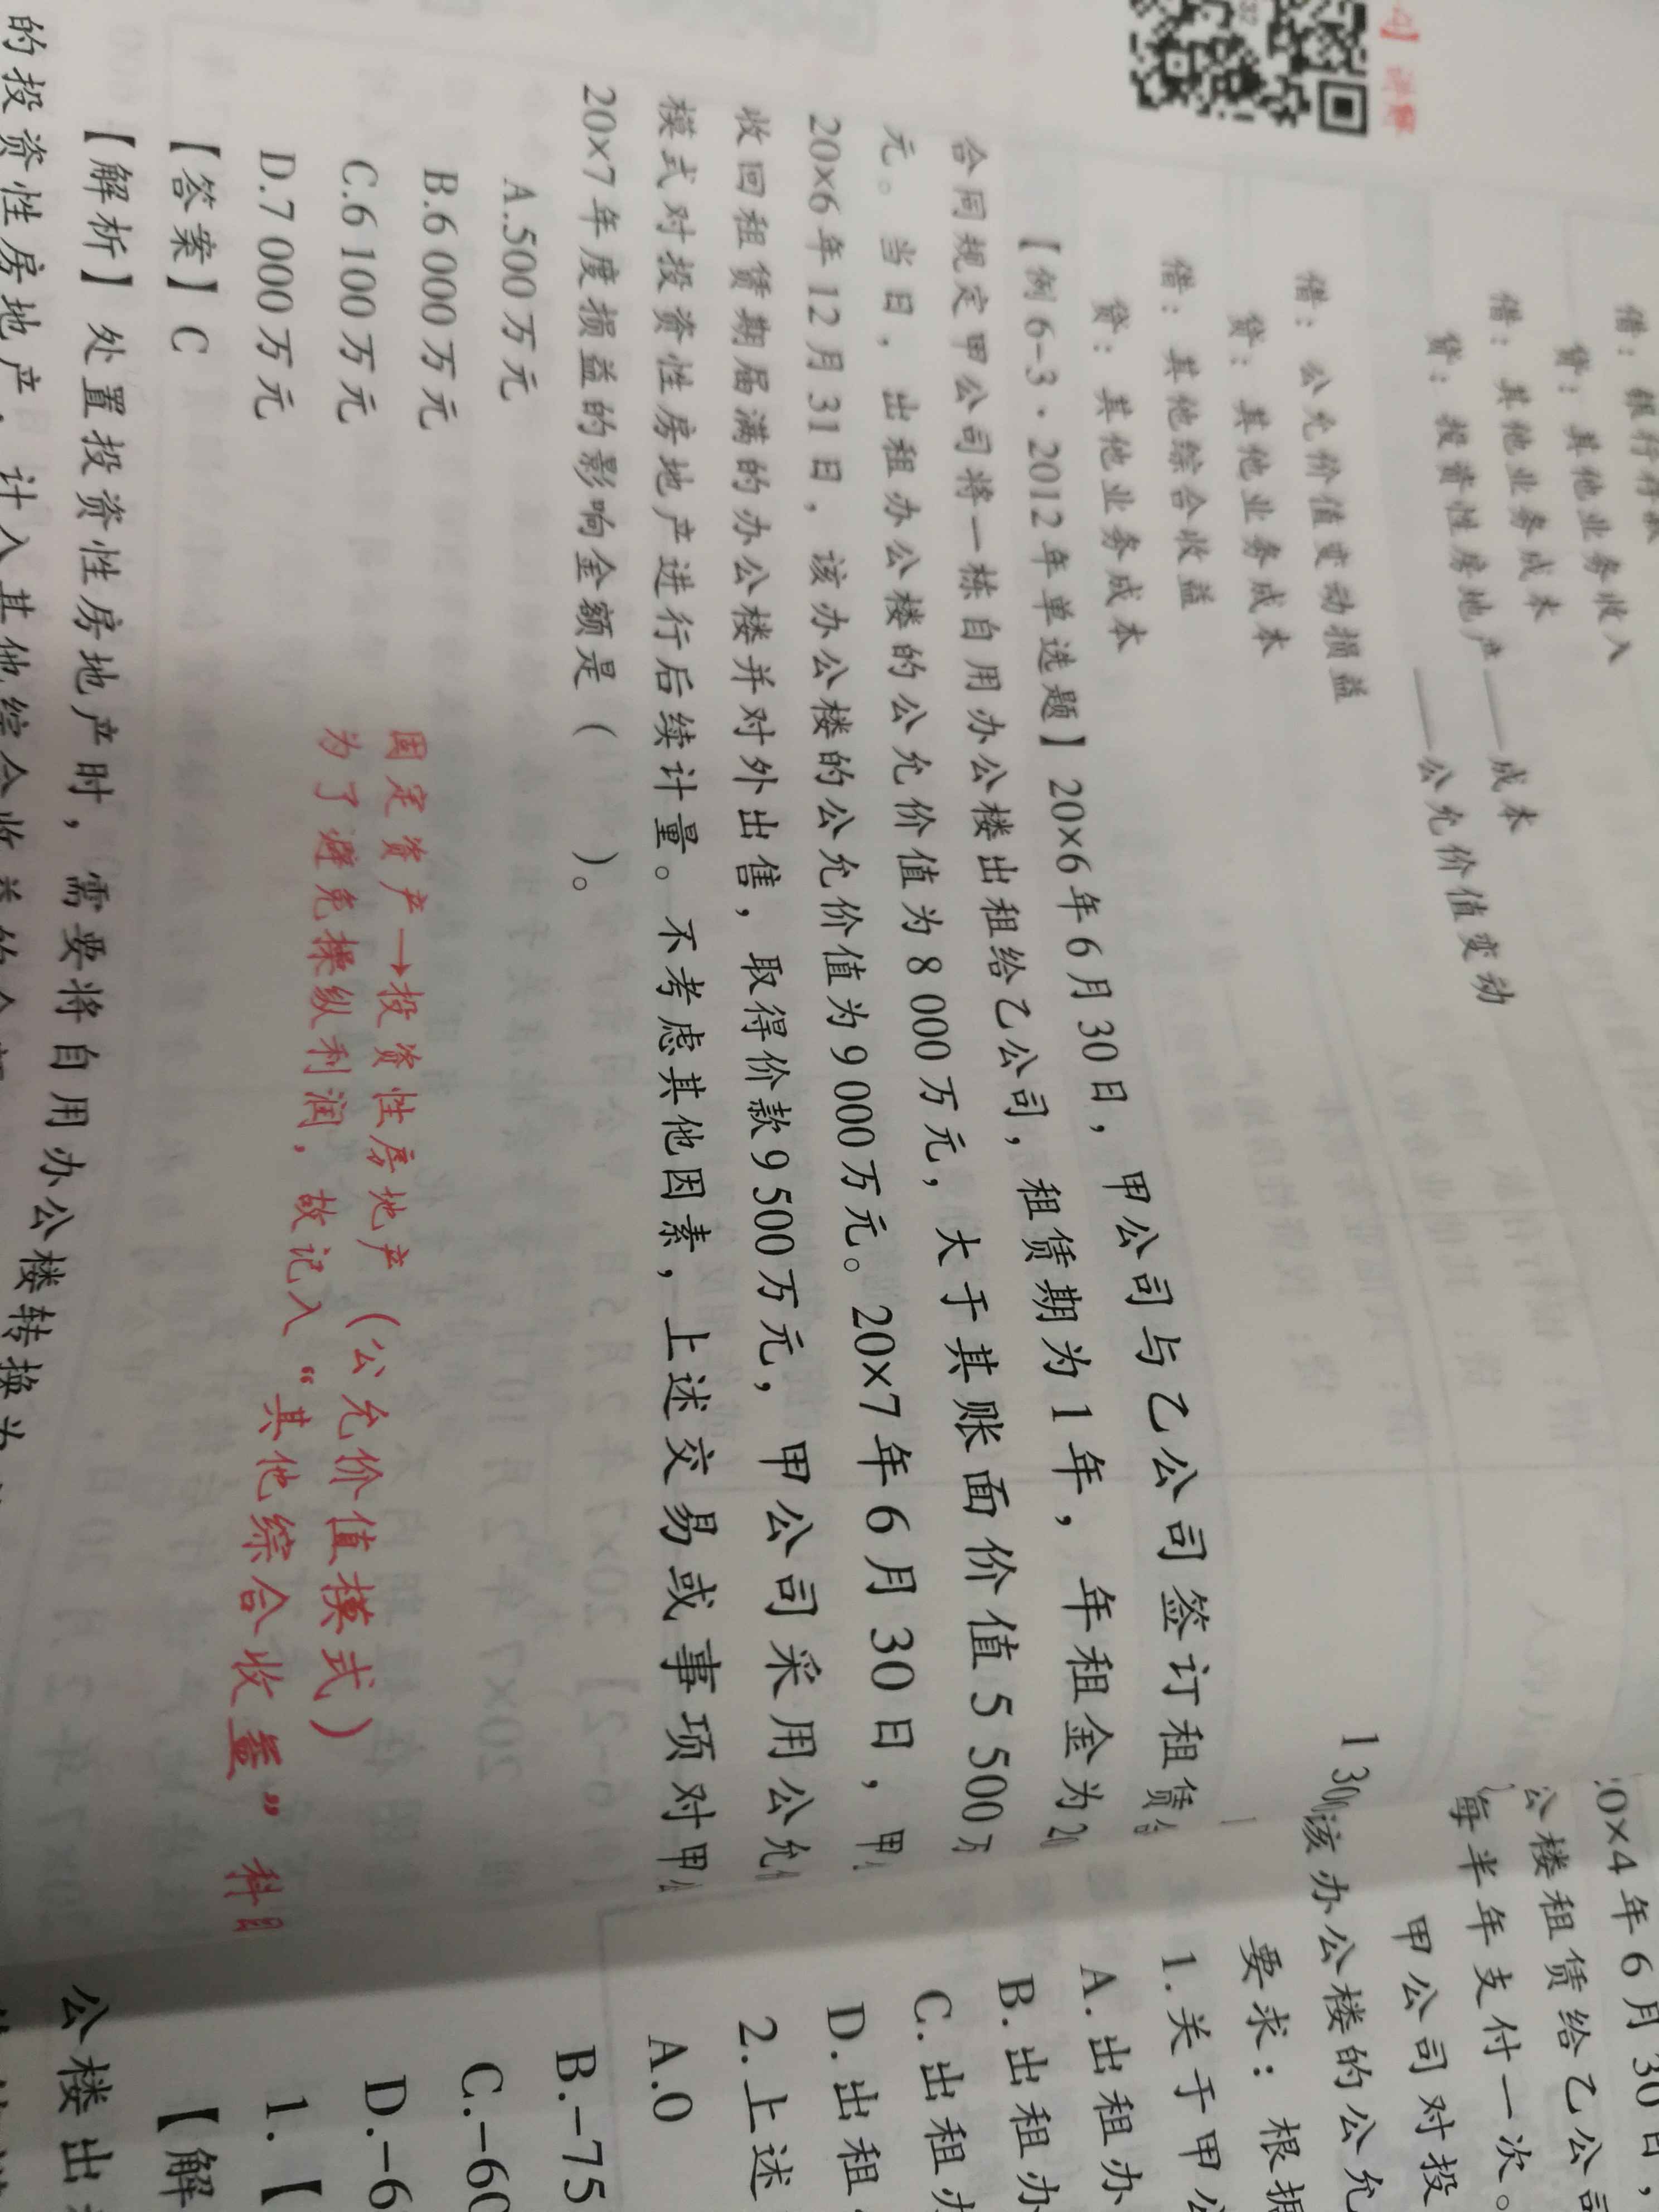 -4】详解
借：银行存款
贷：其他业务收入
借：其他业务成本
贷：投资性房地产——成本
——公允价值变动
借：公允价值变动损益
贷：其他业务成本
借：其他综合收益
贷：其他业务成本
【例6-3·2012年单选题】20×6年6月30日，甲公司与乙公司签订租赁
合同规定甲公司将一栋自用办公楼出租给乙公司，租赁期为1年，年租金为2
元。当日，出租办公楼的公允价值为8 000万元，大于其账面价值5 500万
20×6年12月31日，该办公楼的公允价值为9 000万元。20×7年6月30日，甲
收回租赁期届满的办公楼并对外出售，取得价款9 500万元，甲公司采用公允
模式对投资性房地产进行后续计量。不考虑其他因素，上述交易或事项对甲
20×7年度损益的影响金额是（ ）。
A.500万元
B.6 000万元
C.6 100万元
D.7 000万元
固定资产→投资性房地产（公允价值模式）
为了避免操纵利润，故记入“其他综合收益”科目
【答案】C
【解析】处置投资性房地产时，需要将自用办公楼转换为
的投资性房地产，计入其他综合收益的
0×4年6月30日，
公楼租赁给乙公司
每半年支付一次。
甲公司对投
1 30
该办公楼的公允
要求：根据
1.关于甲公
A.出租办
B.出租办
C.出租办
D.出租
2.上述
A.0
B.-75
C.-60
D.-6
1.【
【解
公楼出